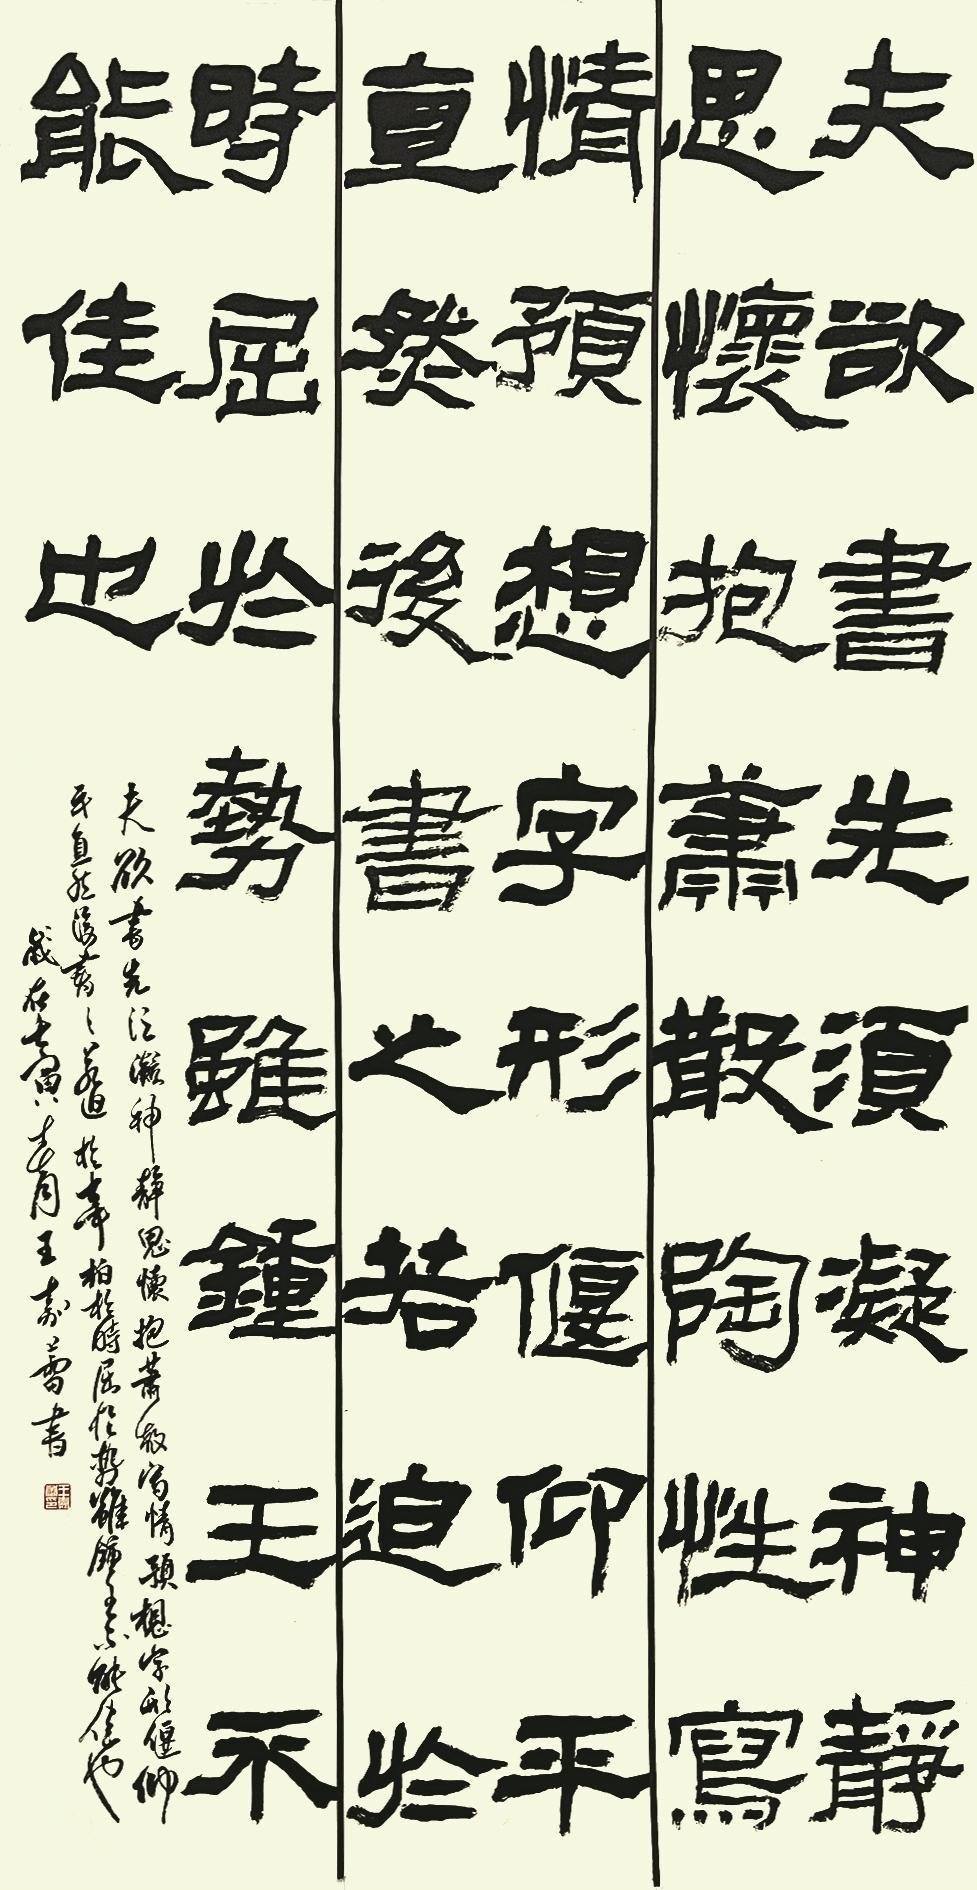 夫欲書先須凝神靜
思懷抱蕭散陶性寫
情預想字形偃仰平
直然後書之若迫於
時屈於勢雖鍾王不
能佳也
夫欲書先須凝神靜思懷抱蕭散寫情預想字形偃仰
平直然後書之若迫於事拘於時屈於勢雖鍾王不能佳也
歲在寅月王書